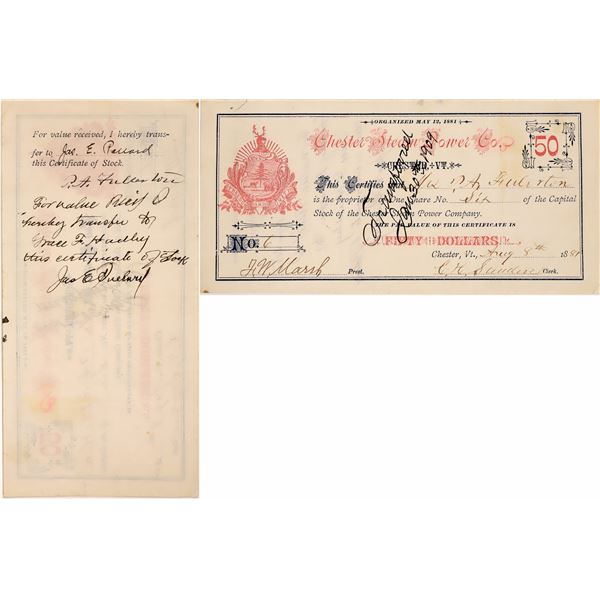 For value received, I hereby trans-
fer to Jas. E. Pollard
this Certificate of Stock.
P. A. Fullerton
For value Rec'd I
hereby transfer to
Grace F. Hadley
this certificate of Stock
Jas E Pollard
ORGANIZED MAY 12, 1881
Chester Steam Power Co.
CHESTER, VT.
50
This Certifies that P. A. Fullerton
is the proprietor of One Share No. Six of the Capital
Stock of the Chester Steam Power Company.
THE PAR VALUE OF THIS CERTIFICATE IS
FIFTY DOLLARS
No. 6
Chester, Vt., Aug 8th 1881
F. W. Marsh Prest. Clerk.
Transferred
Jan 30th 1909